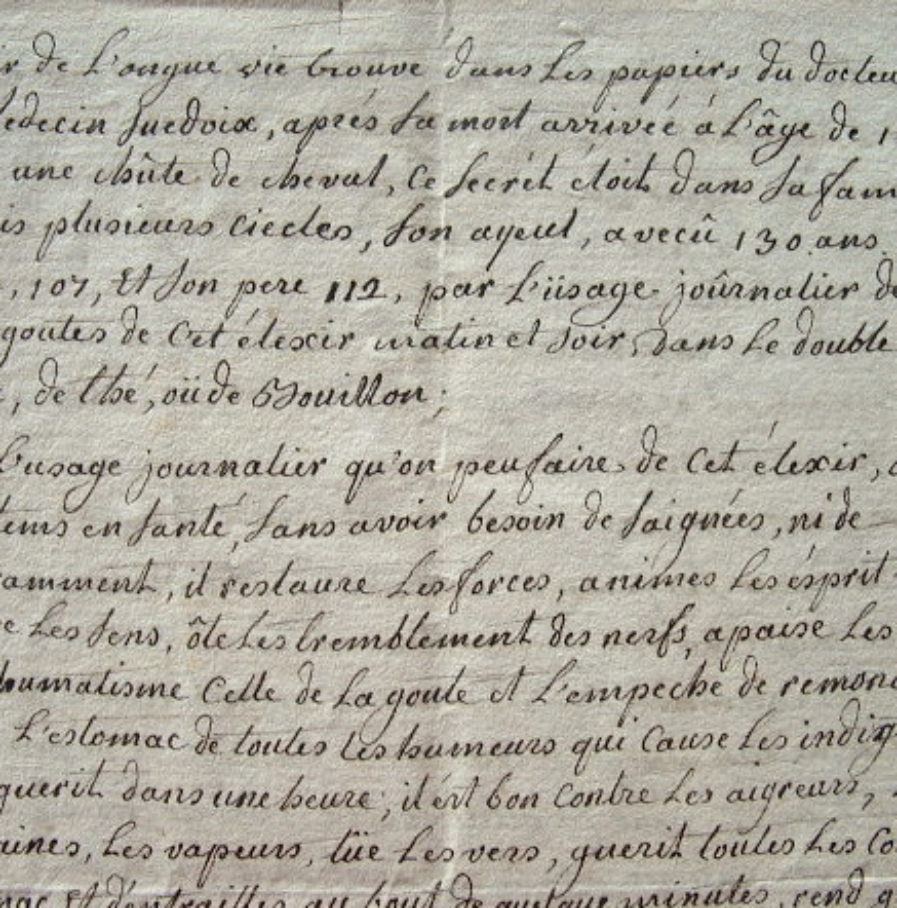 r de L'ongue vie trouvé dans Les papiers du docteu
édecin Suedoix, aprés Sa mort arrivéé á L'âge de 1
une chûte de cheval, Ce Secrét étoit dans Sa fam
is plusieurs Ciecles, Son ayeul, avecû 130 ans.
, 107, Et Son pere 112, par L'üsage joûrnalier de
goutes de Cet élexir matin et Soir, dans Le double
, de thé, oüde Boüillon;
L'usage journalier qu'on peu faire de Cet élexir,
tems en Santé, Sans avoir besoin de Saignées, ni de
camment, il restaure Les forces, animes Les ésprit
e Les Sens, ôte Les tremblement des nerfs, apaise Les
humatisme Celle de La goute et L'empeche de remon
L'estomac de toutes Les humeurs qui Cause Les indig
guerit dans une heure, il ést bon Contre Les aigreurs,
aines, Les vapeurs, tüe Les vers, guerit toutes Les Co
mac Et d'entrailles au bout de quelque minutes, rend g